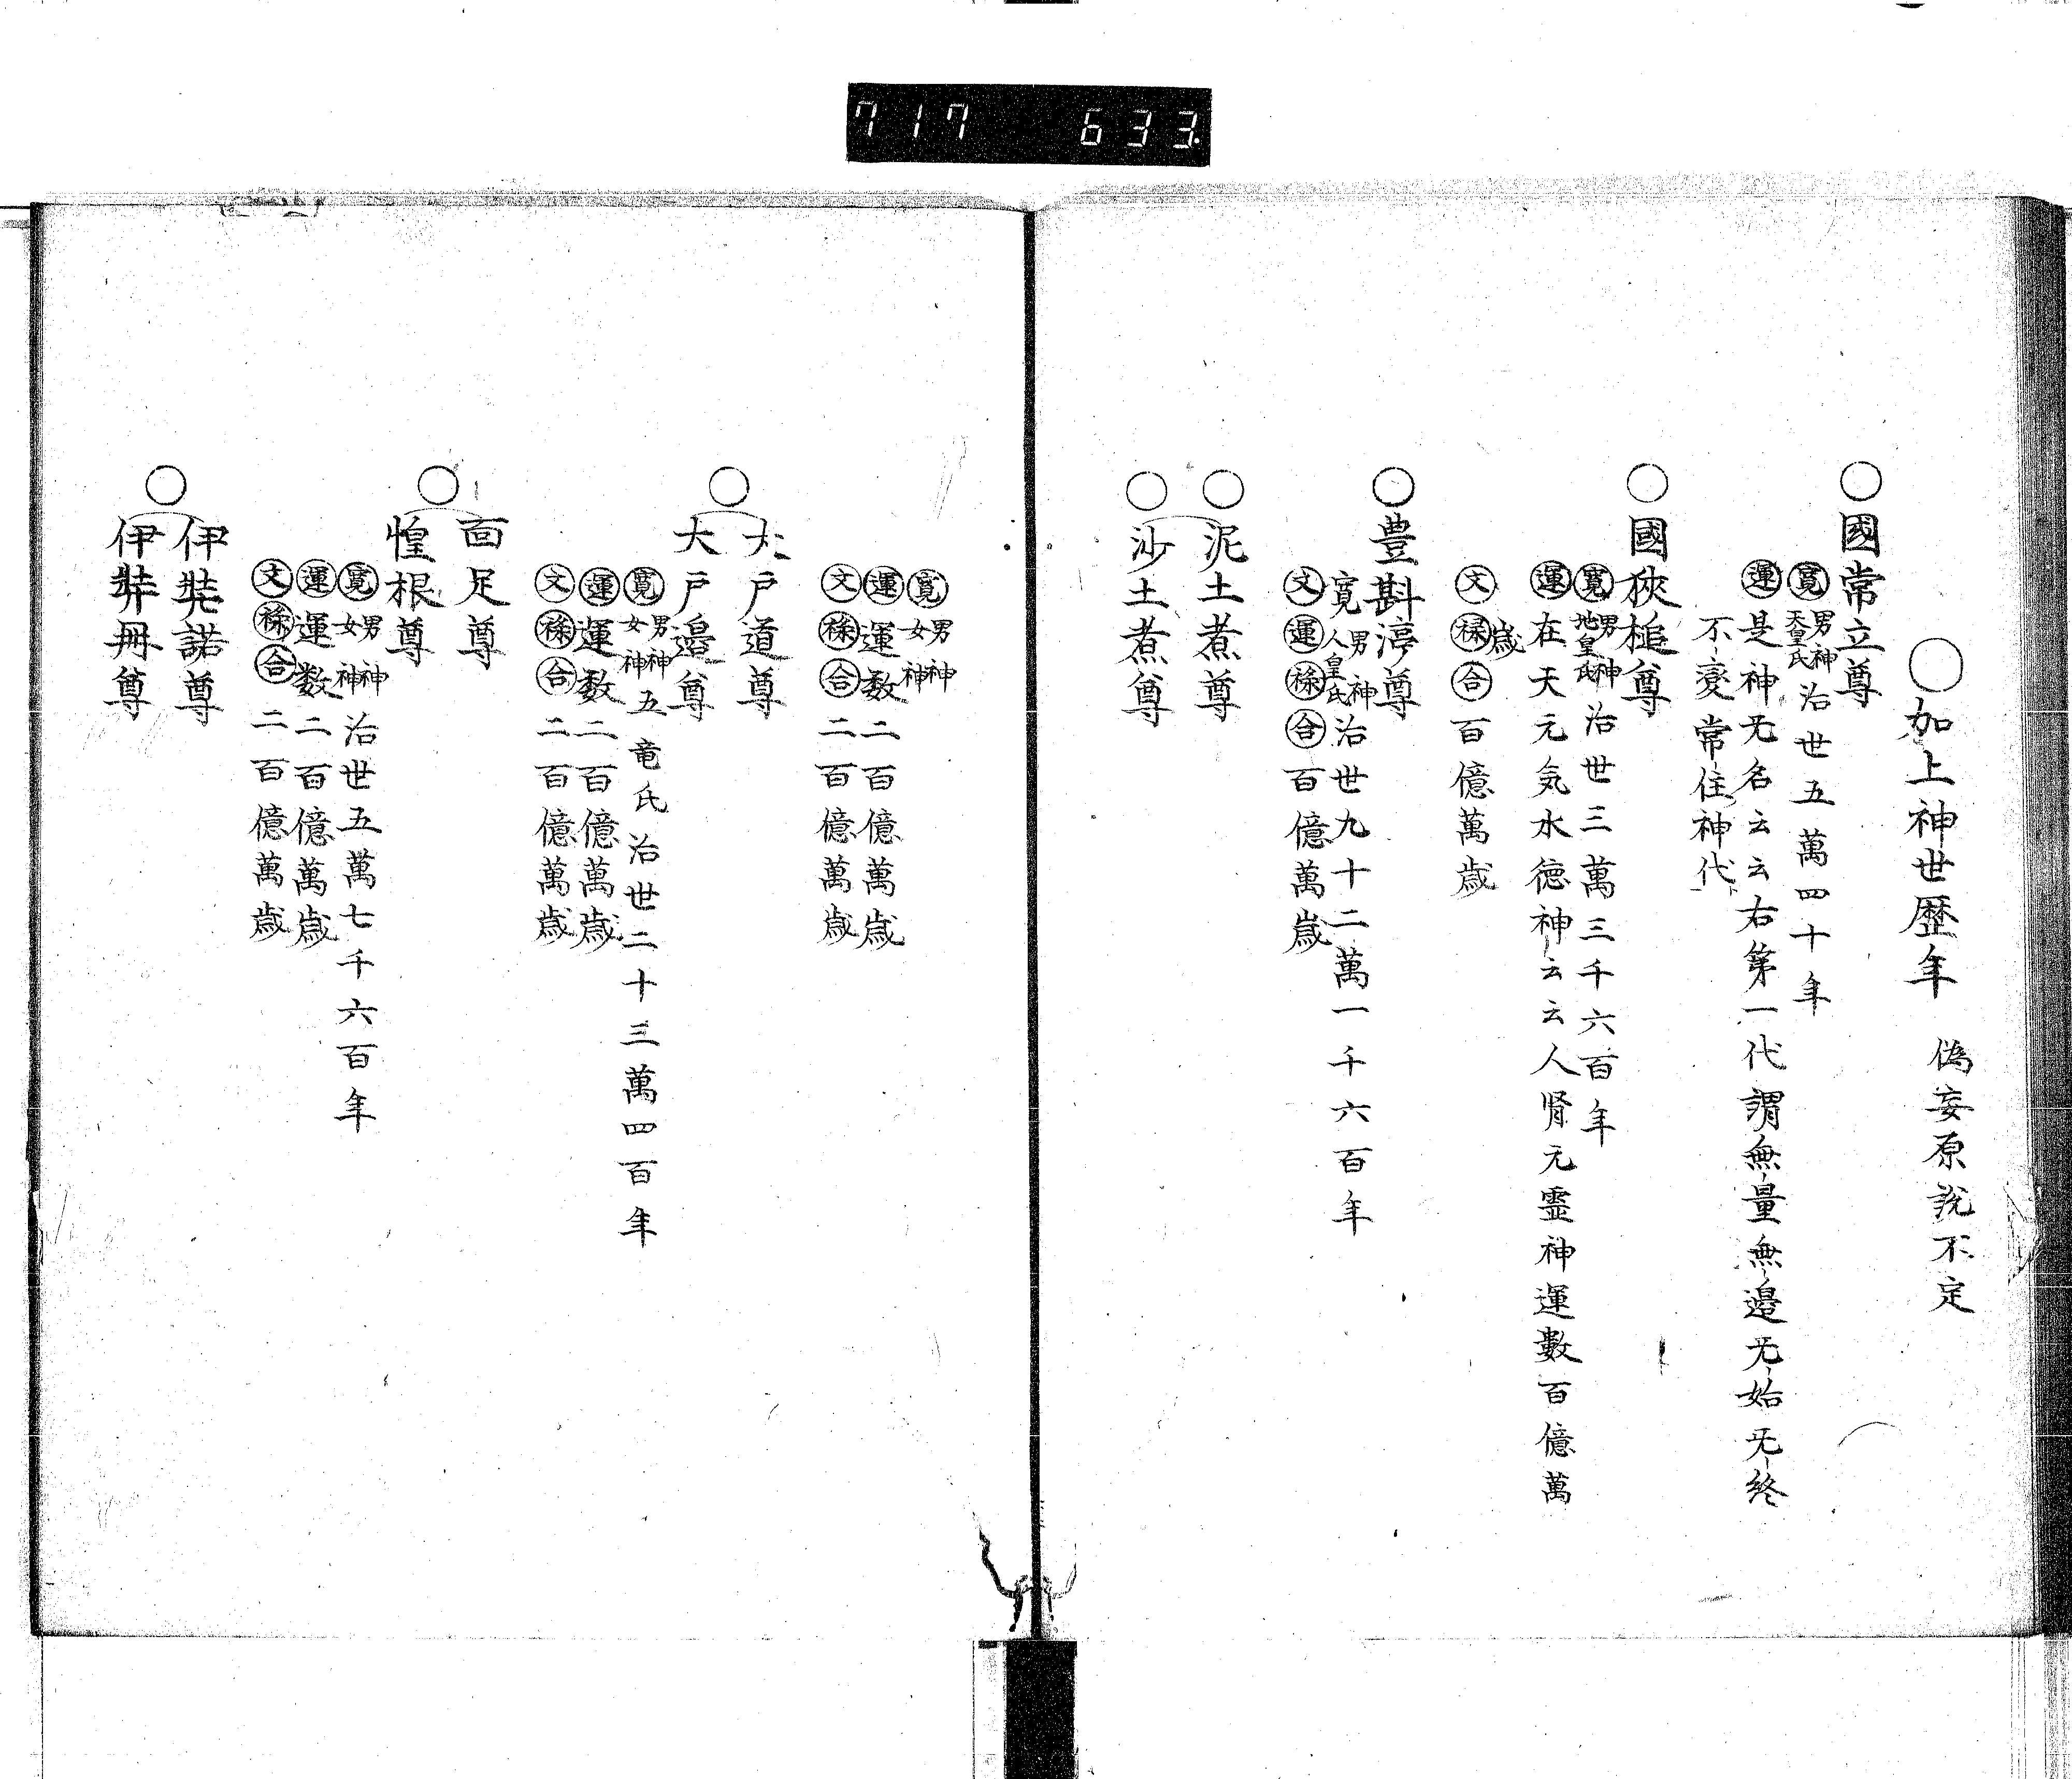 717 633
○加上神世歴年 偽妄原説不定
○國常立尊
寛 男神 天皇氏 治世五萬四十年
運 是神无名云云右第一代謂無量無邊无始无終
不変常住神代
○國狹槌尊
寛 男神 地皇氏 治世三萬三千六百年
運 在天元気水徳神云云人腎元霊神運數百億萬
歳
文 禄 合 百億萬歳
○豊斟渟尊
寛 男神 人皇氏 治世九十二萬一千六百年
文 運 禄 合 百億萬歳
○泥土煮尊
○沙土煮尊
寛 男神 女神
運 運数二百億萬歳
文 禄 合 二百億萬歳
○大戸道尊
大戸邉尊
寛 男神 女神 五竜氏治世二十三萬四百年
運 運数二百億萬歳
文 禄 合 二百億萬歳
○面足尊
惶根尊
寛 男神 女神 治世五萬七千六百年
運 運数二百億萬歳
文 禄 合 二百億萬歳
○伊弉諾尊
伊弉冊尊